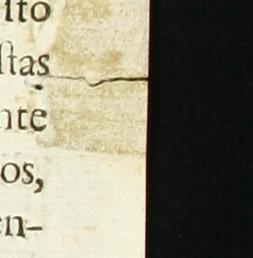 ito
ſtas
nte
os,
en-